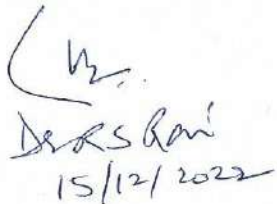 Dr RS Rani
15/12/2022